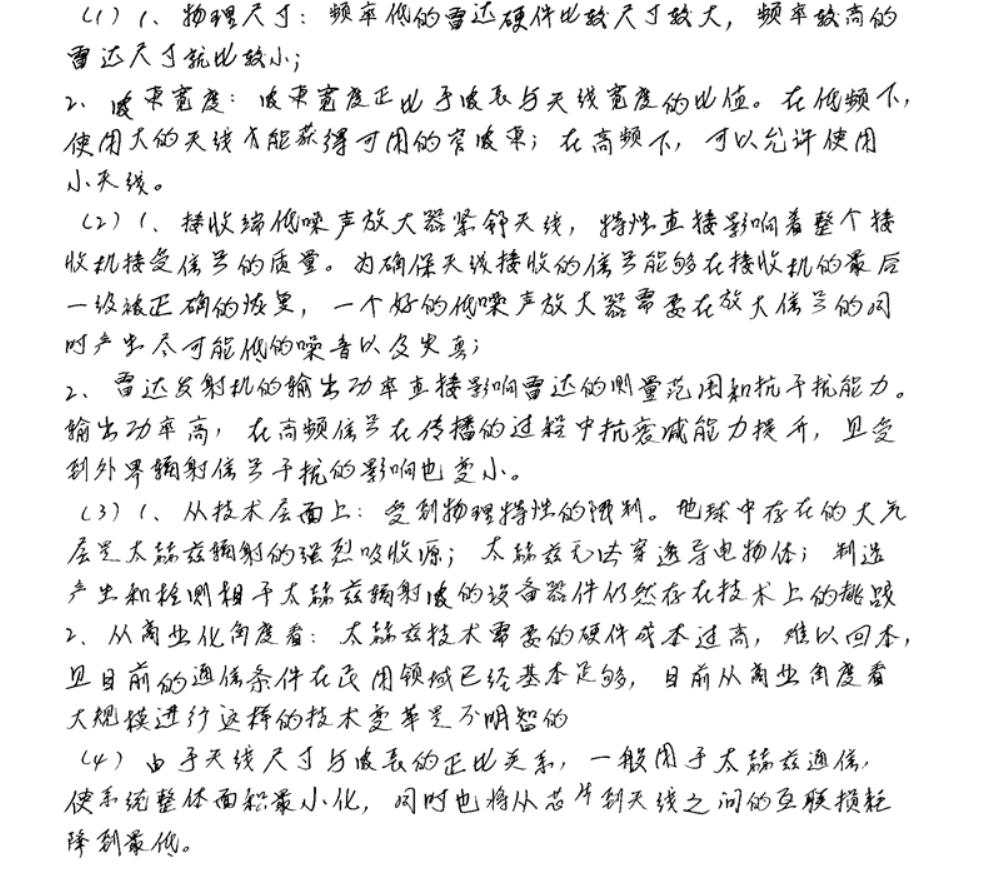 （1）1、物理尺寸：频率低的雷达硬件比较尺寸较大，频率较高的
雷达尺寸就比较小；
2、波束宽度：波束宽度正比于波长与天线宽度的比值。在低频下，
使用大的天线才能获得可用的窄波束；在高频下，可以允许使用
小天线。
（2）1、接收端低噪声放大器紧邻天线，特性直接影响着整个接
收机接受信号的质量。为确保天线接收的信号能够在接收机的最后
一级被正确的恢复，一个好的低噪声放大器需要在放大信号的同
时产生尽可能低的噪音以及失真；
2、雷达发射机的输出功率直接影响雷达的测量范围和抗干扰能力。
输出功率高，在高频信号在传播的过程中抗衰减能力提升，且受
到外界辐射信号干扰的影响也变小。
（3）1、从技术层面上：受到物理特性的限制。地球中存在的大气
层是太赫兹辐射的强烈吸收源；太赫兹无法穿透导电物体；制造
产生和检测相干太赫兹辐射波的设备器件仍然存在技术上的挑战
2、从商业化角度看：太赫兹技术需要的硬件成本过高，难以回本，
且目前的通信条件在民用领域已经基本足够，目前从商业角度看
大规模进行这样的技术变革是不明智的
（4）由于天线尺寸与波长的正比关系，一般用于太赫兹通信，
使系统整体面积最小化，同时也将从芯片到天线之间的互联损耗
降到最低。